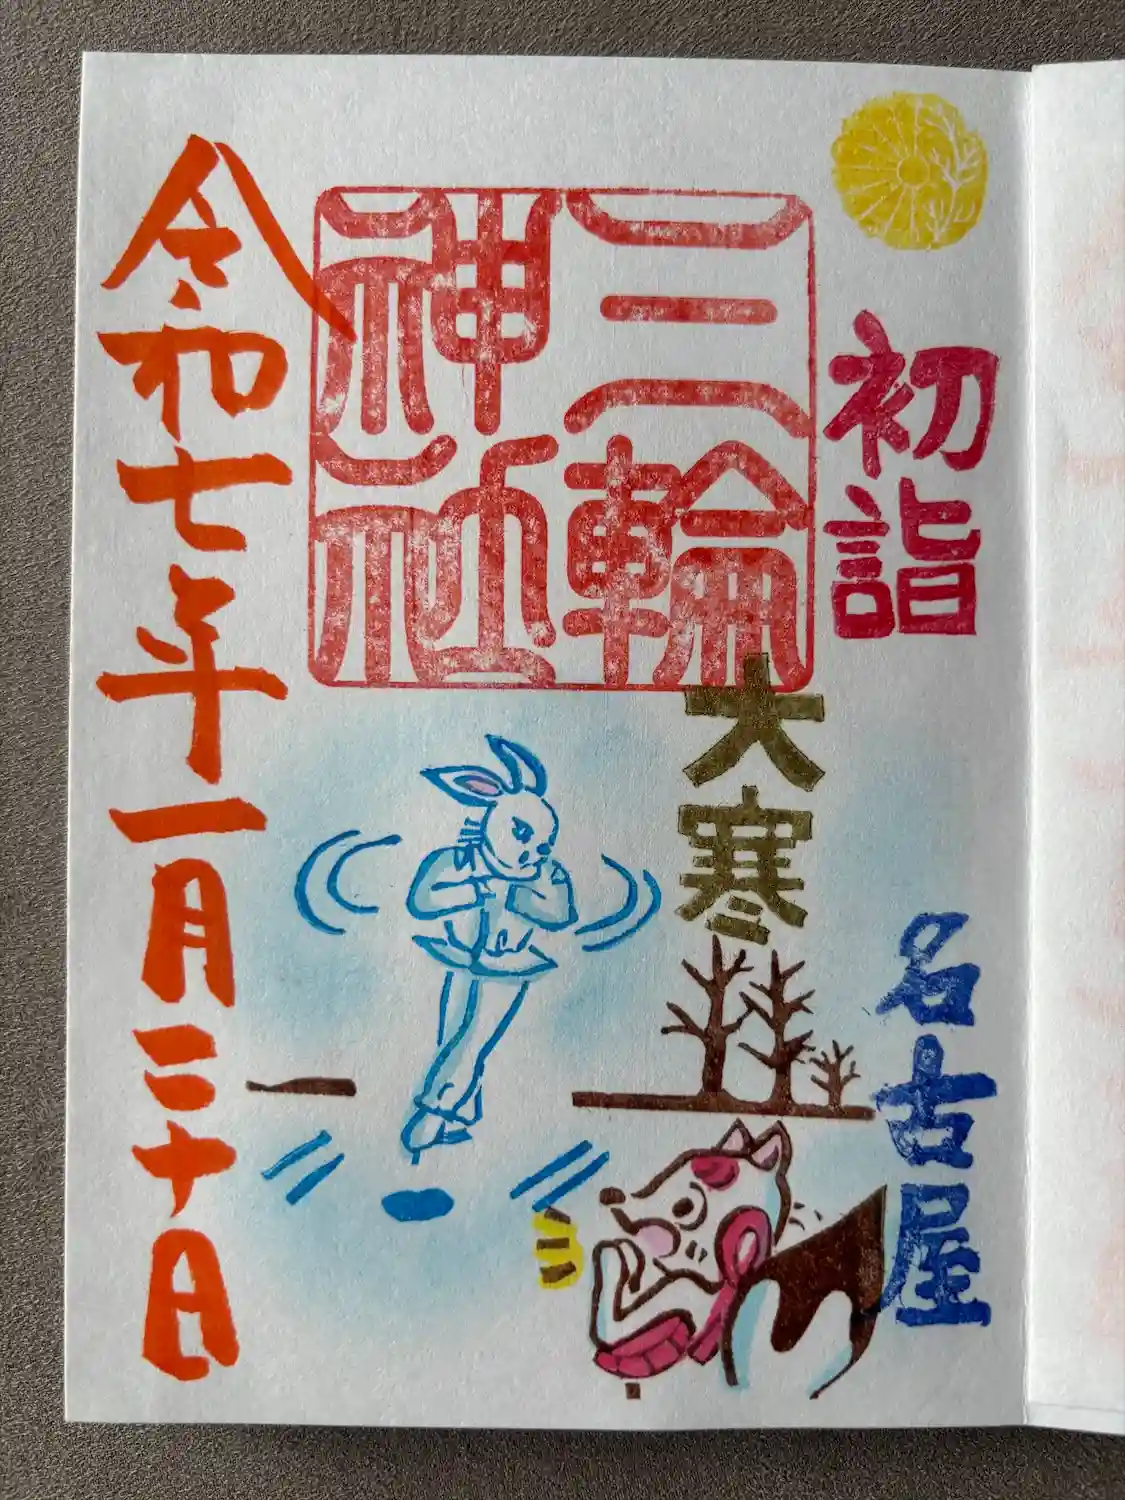 初詣
名古屋
三輪
神社
大寒
令和七年一月二十日